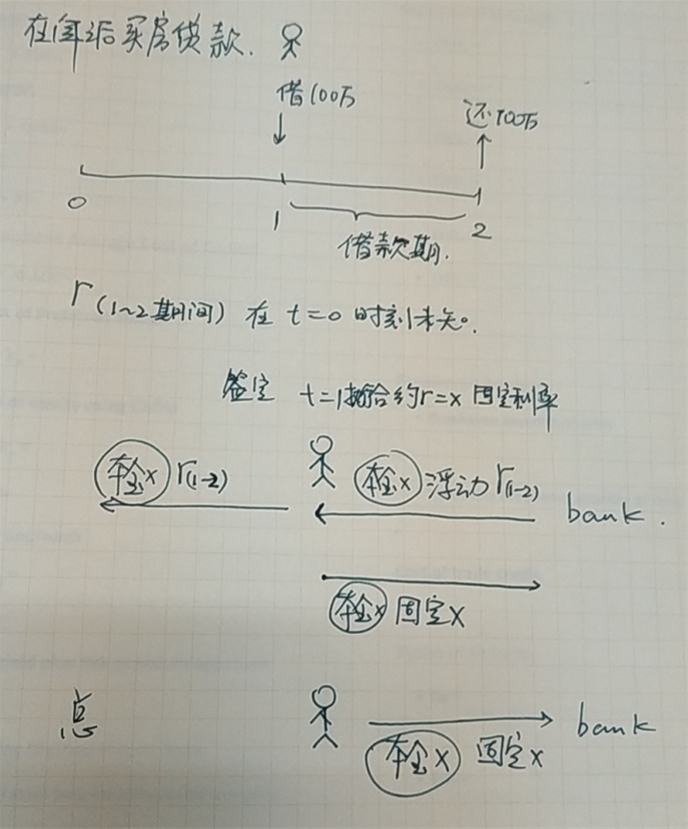 在1年后买房贷款.
借100万
还100万
0
1
2
借款期.
r(1~2期间) 在 t=0 时刻未知.
签定 t=1 合约 r=x 固定利率
本金× r(1-2)
本金× 浮动 r(1-2)
bank.
本金× 固定x
总
bank
本金× 固定x